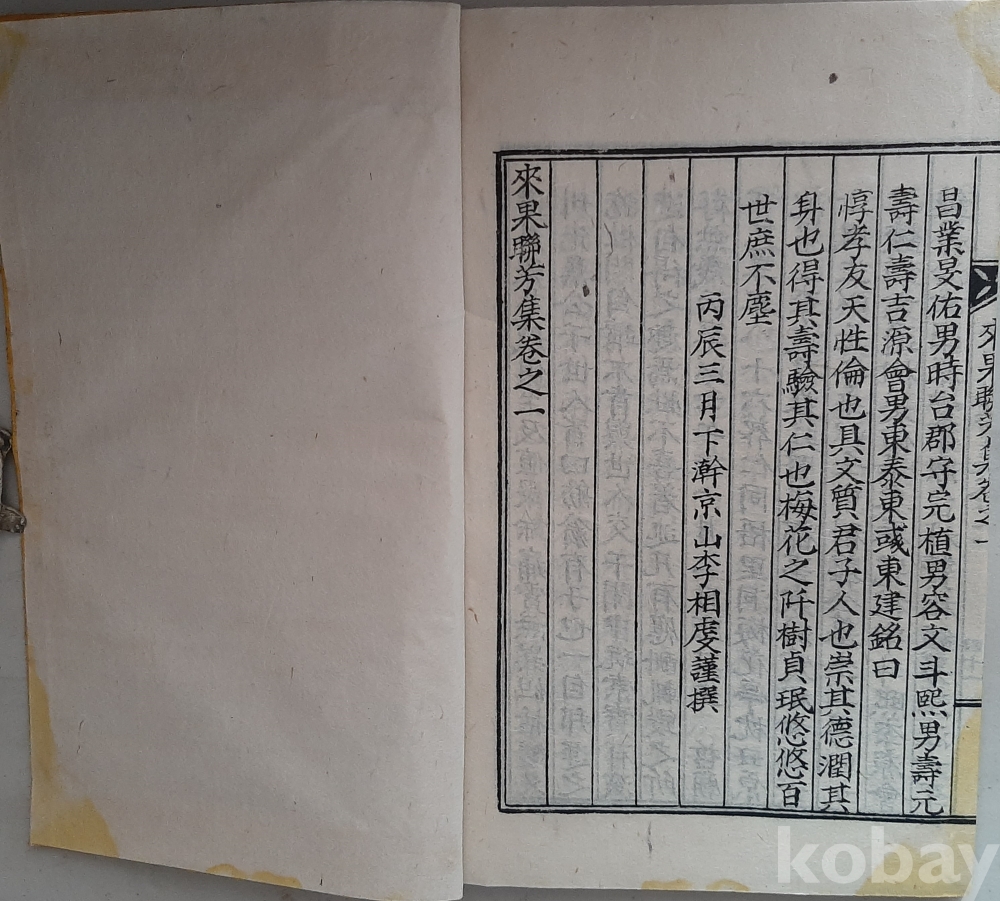 昌業旻佑男時台郡守完植男容文斗熙男壽元
壽仁壽吉源會男東泰東彧東建銘曰
惇孝友天性倫也具文質君子人也崇其德潤其
身也得其壽驗其仁也梅花之阡樹貞珉悠悠百
世庶不塵
丙辰三月下澣京山李相虔謹撰
來果聯芳集卷之一
來果聯芳集卷之一
kobay